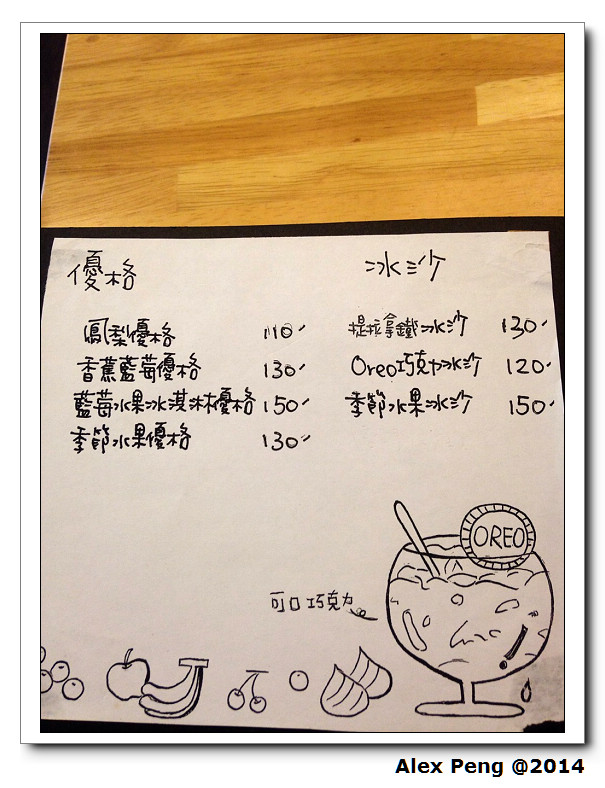 優格
鳳梨優格 110
香蕉藍莓優格 130
藍莓水果冰淇淋優格 150
季節水果優格 130
冰沙
提拉拿鐵冰沙 130
Oreo巧克力冰沙 120
季節水果冰沙 150
OREO
可口巧克力
Alex Peng @2014